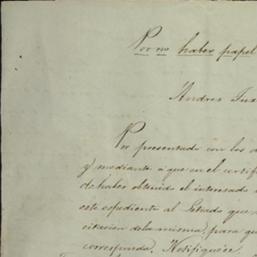 Por no haber papel
Andres
Por presentado con los
y mediante á que en el certifi
de haber obtenido el interesado
este espediente al Estado que
citacion de la misma, para que
corresponda. Notifíquese.